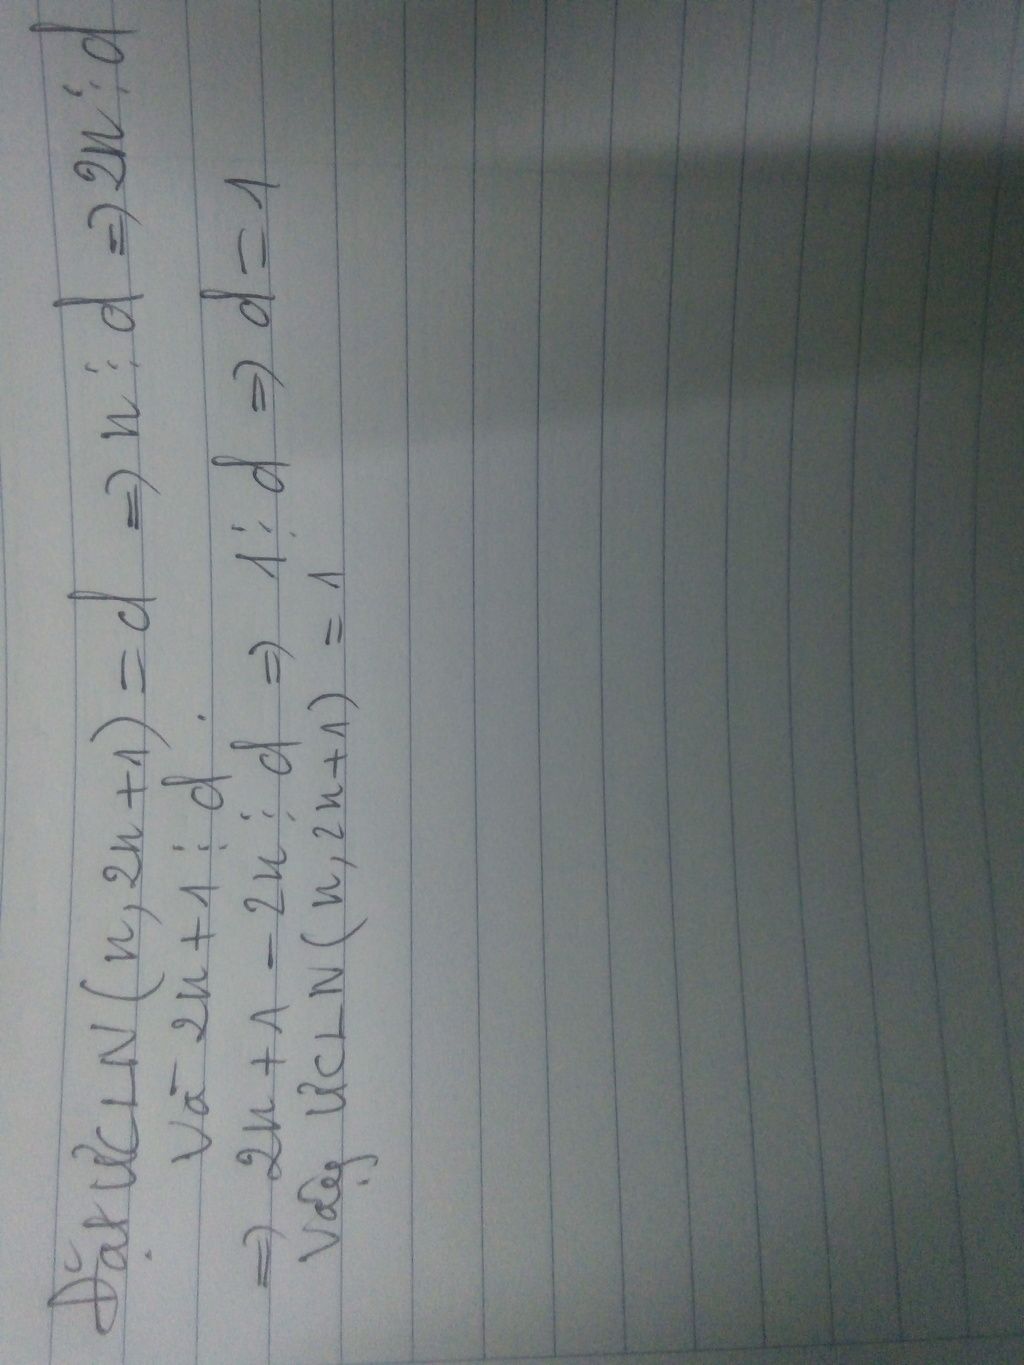 Đặt ƯCLN(n, 2n+1) = d => n ⋮ d => 2n ⋮ d
Và 2n+1 ⋮ d.
=> 2n+1 - 2n ⋮ d => 1 ⋮ d => d = 1
Vậy ƯCLN(n, 2n+1) = 1